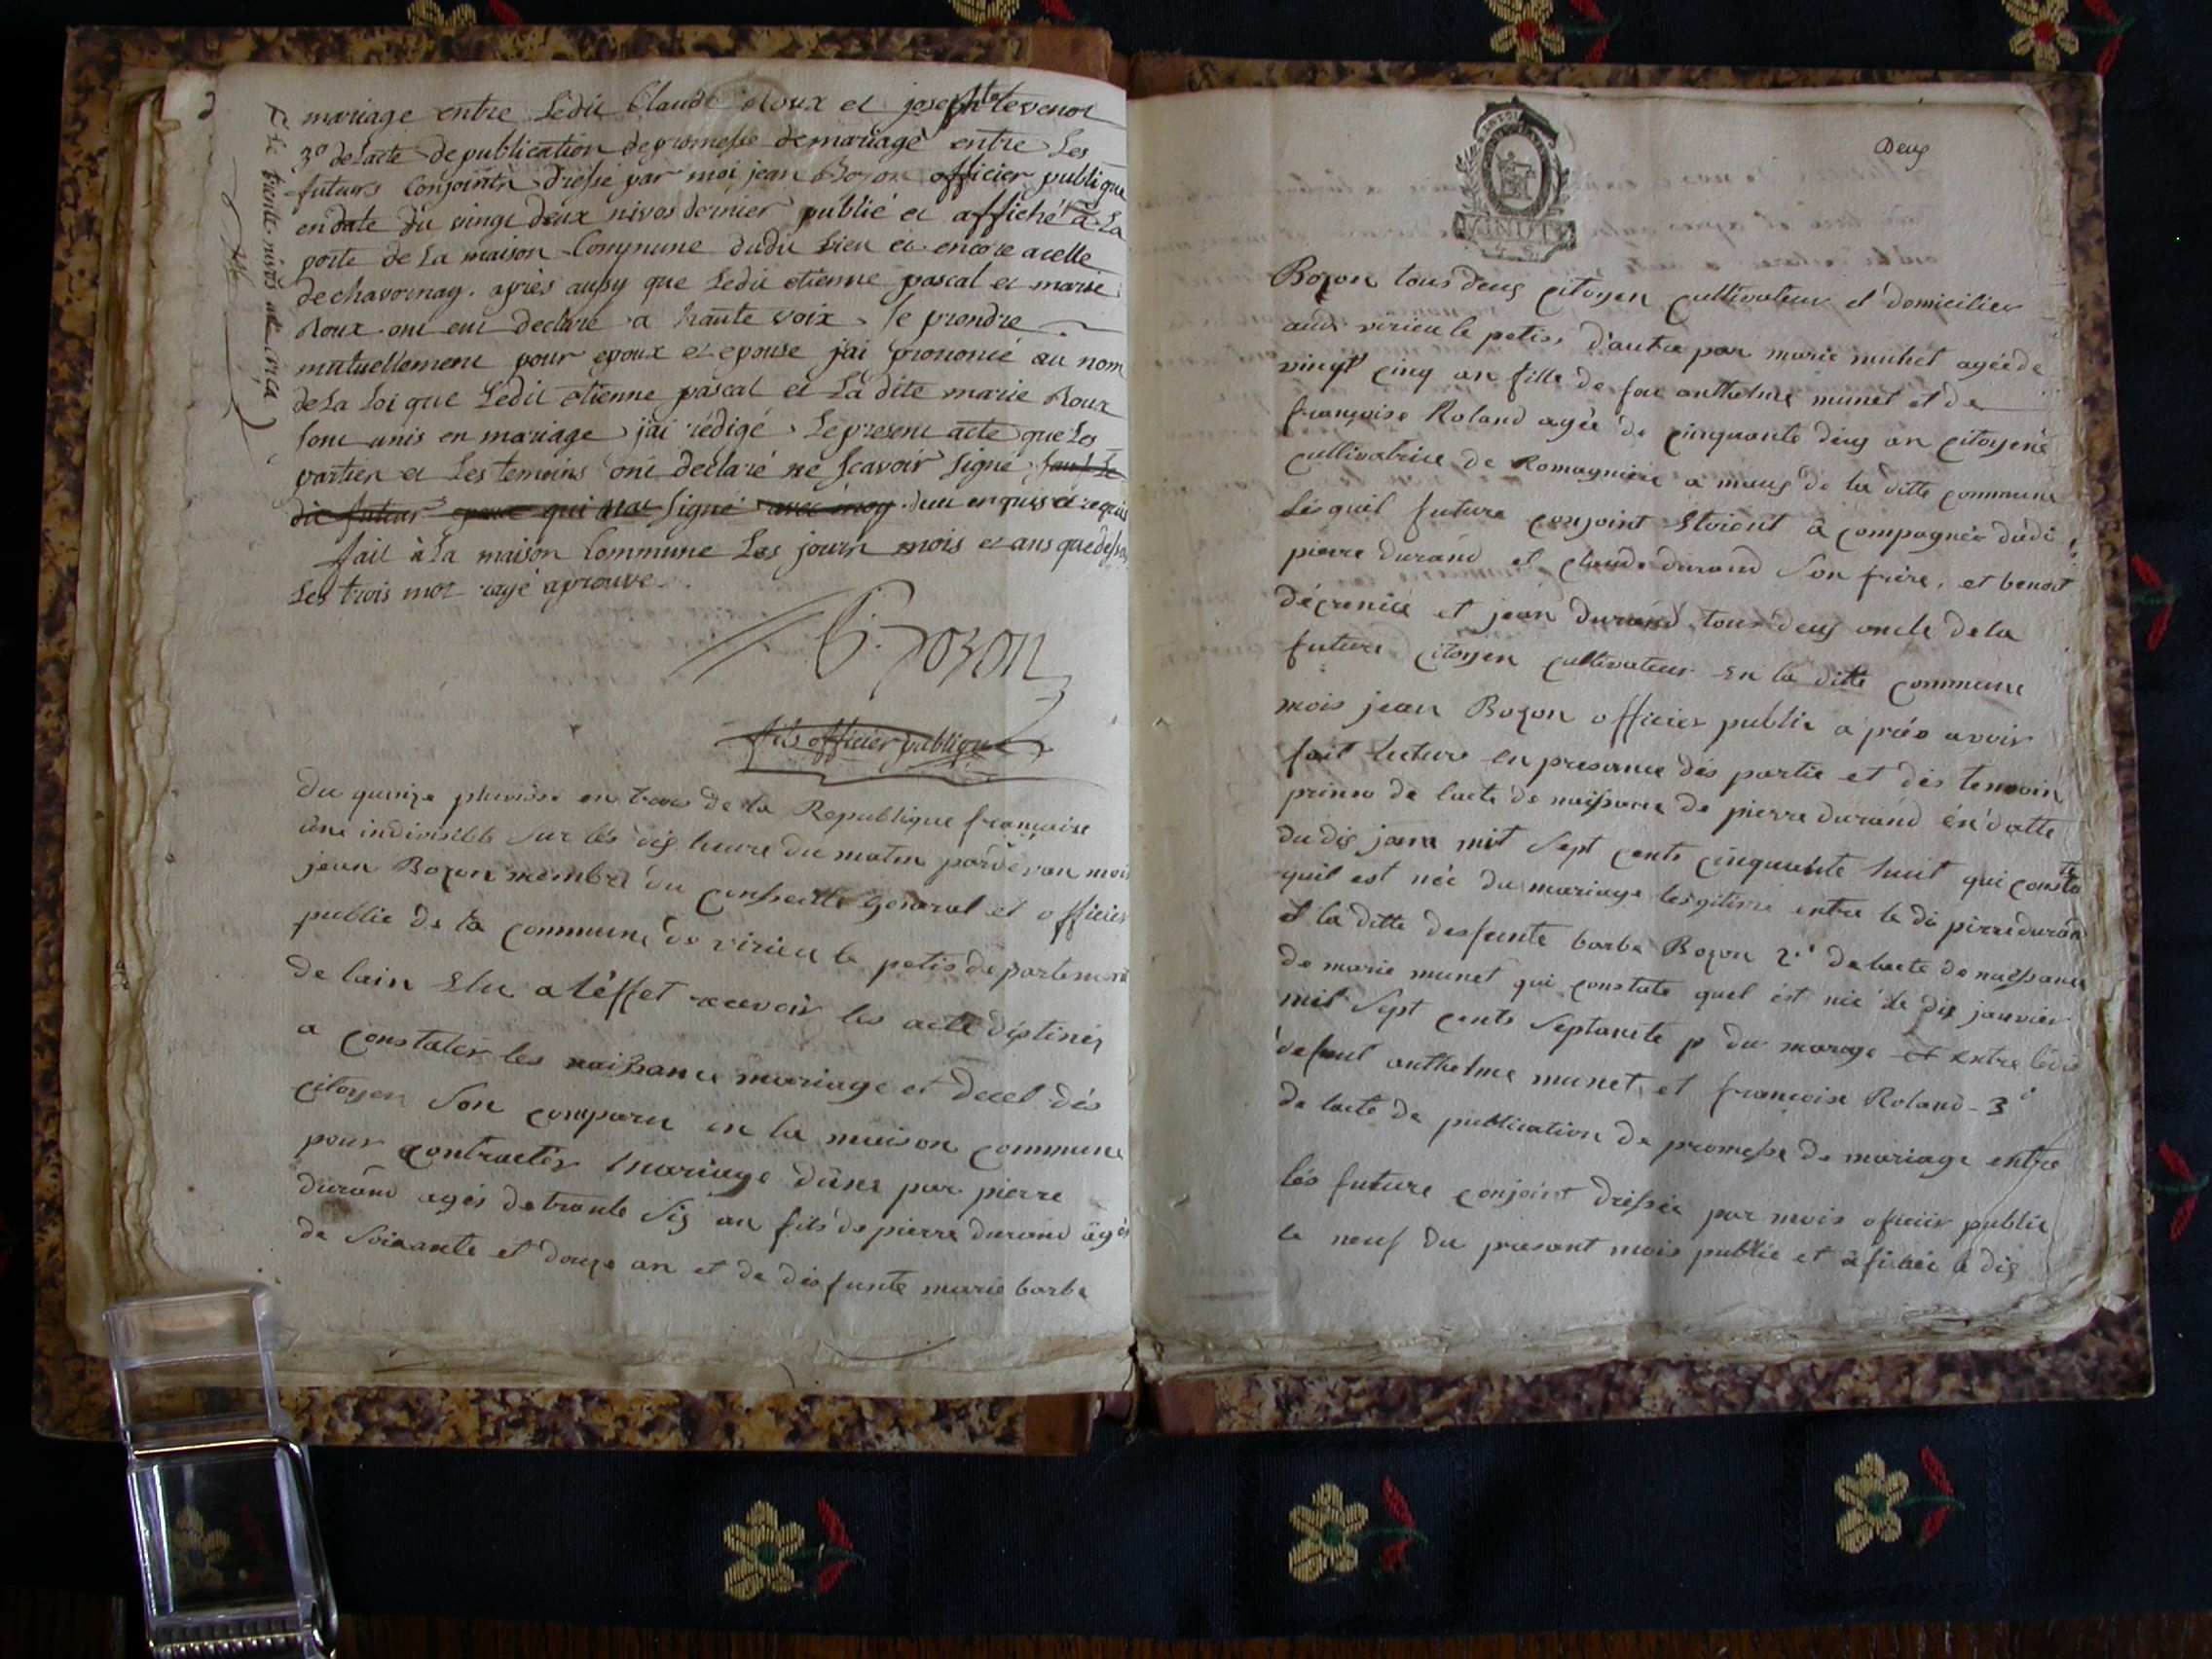 mariage entre Ledit Claude Roux et josephte tevenot
3º de Lacte de publication de promesse de mariage entre Les
futurs Conjoints dressé par moi jean Bozon officier publique
en date du vingt deux nivos dernier publié et affiché à La
porte de La maison Commune dudit Lieu et encore a celle
de chavornay. après aussy que Ledit etienne pascal et marie
Roux ont eut declaré a haute voix Se prendre
mutuellement pour epoux et epouse j'ai prononcé au nom
de La Loi que Ledit etienne pascal et La dite marie Roux
sont unis en mariage j'ai rédigé Le present acte que Les
parties et Les temoins ont declaré ne scavoir signé sauf Le
dit futur epoux qui signé avec moy de ce enquis et requis
fait à La maison Commune Les jours mois et ans que dessus
Les trois mot rayé aprouve
Bozon
fils officier publique
Le trente nivos
du quinze pluviose en trois de la Republique françoise
une indivisible sur lés dis heure du matin pardevan mois
jean Bozon membre du conseille general et officier
public de la commune de virieu le petis departement
de lain Elu a léffet recevoir les acte déstinés
a constater les naissance mariage et decet dés
citoyen son comparu en la maison commune
pour contracter mariage dunes par pierre
durand agés de trante sis an fils de pierre durand agés
de soixante et douze an et de desfunte marie barbe
Deux
MINUTE
Bozon tous deus citoyen cultivateur et domicilier
audi virieu le petis d'autre par marie munet agée de
vingt cinq an fille de feu anthelme munet et de
françoise Roland agée de cinquante deus an citoyene
cultivatrice de Romagnieu a meaus de la ditte commune
lésquil future conjoint étoient a compagnés dudi
pierre durand et claude durand son frére, et benoit
décrenice et jean durand tous deus oncle de la
future citoyen cultivateur en la ditte commune
mois jean Bozon officier public a prés avoir
fait lecture en presance dés partie et dés temoin
primo de lacte de naissance de pierre durand én datte
du dis janv mit sept cents cinquante huit qui constate
quil est née du mariage lesgitime entre le di pierre durand
et la ditte desfunte barbe Bozon 2º de lacte de naissance
de marie munet qui constate quel ést née le dix janvier
mil sept cents septante p du marage et entre lédis
defunt anthelme munet et francoise Roland 3º
de lacte de publication de promesse de mariage entre
lés future conjoint dréssée par mois oficiir public
le neuf du presant mois publie et afichée a dis